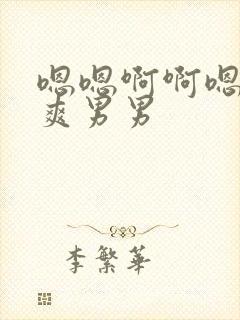 嗯嗯啊啊嗯
爽男男
李繁华